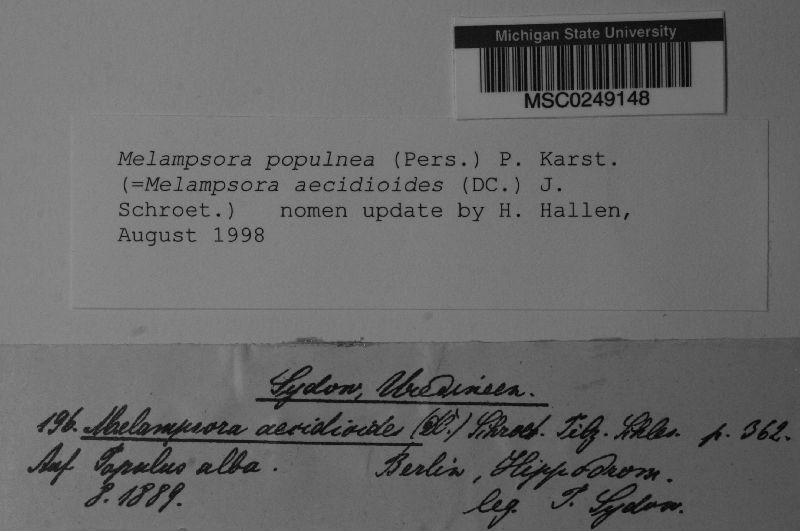 Michigan State University
MSC0249148
Melampsora populnea (Pers.) P. Karst.
(=Melampsora aecidioides (DC.) J.
Schroet.) nomen update by H. Hallen,
August 1998
Sydow, Uredineen.
196. Melampsora aecidioides (DC.) Schroet. Pilz. Schles. p. 362.
Auf Populus alba. Berlin, Hippodrom.
8. 1889. leg. P. Sydow.